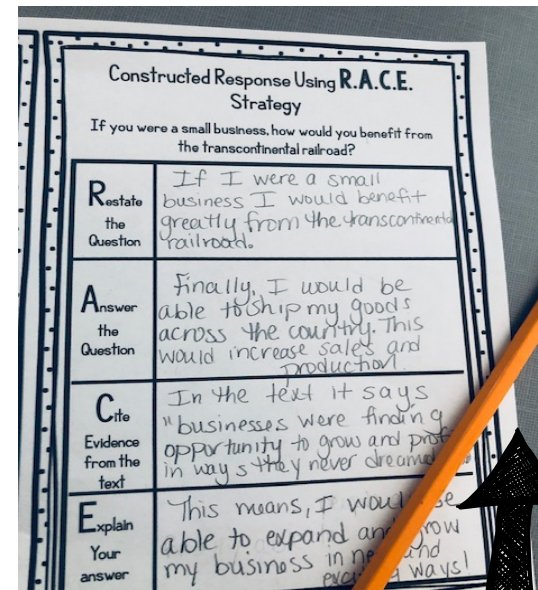 Constructed Response Using R.A.C.E.
Strategy
If you were a small business, how would you benefit from
the transcontinental railroad?
Restate
the
Question
If I were a small
business I would benefit
greatly from the transcontinental
railroad.
Answer
the
Question
Finally, I would be
able to ship my goods
across the country. This
would increase sales and
production.
Cite
Evidence
from the
text
In the text it says
"businesses were finding
opportunity to grow and
in ways they never
Explain
Your
answer
This means, I
able to expand
my business in
ways!